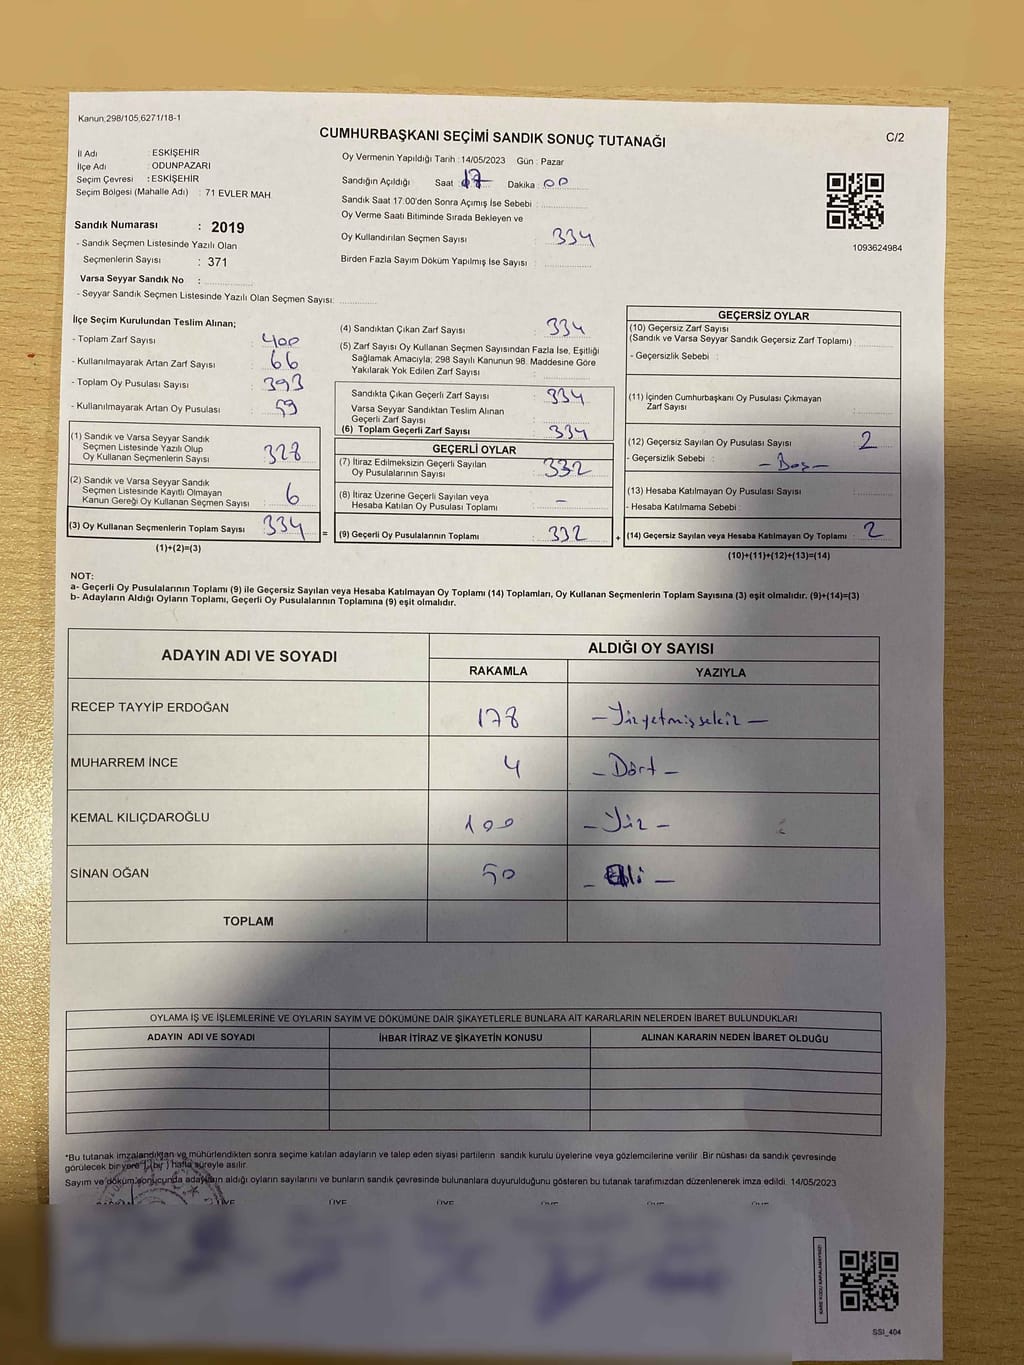 Kanun,298/105,6271/18-1
CUMHURBAŞKANI SEÇİMİ SANDIK SONUÇ TUTANAĞI
C/2
İl Adı : ESKİŞEHİR
İlçe Adı : ODUNPAZARI
Seçim Çevresi : ESKİŞEHİR
Seçim Bölgesi (Mahalle Adı) : 71 EVLER MAH
Sandık Numarası : 2019
- Sandık Seçmen Listesinde Yazılı Olan
Seçmenlerin Sayısı : 371
Varsa Seyyar Sandık No :
- Seyyar Sandık Seçmen Listesinde Yazılı Olan Seçmen Sayısı:
Oy Vermenin Yapıldığı Tarih : 14/05/2023 Gün : Pazar
Sandığın Açıldığı Saat : 17 Dakika : 00
Sandık Saat 17:00'den Sonra Açımış İse Sebebi :
Oy Verme Saati Bitiminde Sırada Bekleyen ve
Oy Kullandırılan Seçmen Sayısı : 334
Birden Fazla Sayım Döküm Yapılmış İse Sayısı :
1093624984
İlçe Seçim Kurulundan Teslim Alınan;
- Toplam Zarf Sayısı : 400
- Kullanılmayarak Artan Zarf Sayısı : 66
- Toplam Oy Pusulası Sayısı : 393
- Kullanılmayarak Artan Oy Pusulası : 59
(1) Sandık ve Varsa Seyyar Sandık
Seçmen Listesinde Yazılı Olup
Oy Kullanan Seçmenlerin Sayısı : 328
(2) Sandık ve Varsa Seyyar Sandık
Seçmen Listesinde Kayıtlı Olmayan
Kanun Gereği Oy Kullanan Seçmen Sayısı : 6
(3) Oy Kullanan Seçmenlerin Toplam Sayısı : 334 =
(1)+(2)=(3)
(4) Sandıktan Çıkan Zarf Sayısı : 334
(5) Zarf Sayısı Oy Kullanan Seçmen Sayısından Fazla İse, Eşitliği
Sağlamak Amacıyla; 298 Sayılı Kanunun 98. Maddesine Göre
Yakılarak Yok Edilen Zarf Sayısı :
Sandıkta Çıkan Geçerli Zarf Sayısı : 334
Varsa Seyyar Sandıktan Teslim Alınan
Geçerli Zarf Sayısı :
(6) Toplam Geçerli Zarf Sayısı : 334
GEÇERLİ OYLAR
(7) İtiraz Edilmeksizin Geçerli Sayılan
Oy Pusulalarının Sayısı : 332
(8) İtiraz Üzerine Geçerli Sayılan veya
Hesaba Katılan Oy Pusulası Toplamı : –
(9) Geçerli Oy Pusulalarının Toplamı : 332 +
GEÇERSİZ OYLAR
(10) Geçersiz Zarf Sayısı
(Sandık ve Varsa Seyyar Sandık Geçersiz Zarf Toplamı) :
- Geçersizlik Sebebi :
(11) İçinden Cumhurbaşkanı Oy Pusulası Çıkmayan
Zarf Sayısı :
(12) Geçersiz Sayılan Oy Pusulası Sayısı : 2
- Geçersizlik Sebebi : – Boş –
(13) Hesaba Katılmayan Oy Pusulası Sayısı :
- Hesaba Katılmama Sebebi :
(14) Geçersiz Sayılan veya Hesaba Katılmayan Oy Toplamı : 2
(10)+(11)+(12)+(13)=(14)
NOT:
a- Geçerli Oy Pusulalarının Toplamı (9) ile Geçersiz Sayılan veya Hesaba Katılmayan Oy Toplamı (14) Toplamları, Oy Kullanan Seçmenlerin Toplam Sayısına (3) eşit olmalıdır. (9)+(14)=(3)
b- Adayların Aldığı Oyların Toplamı, Geçerli Oy Pusulalarının Toplamına (9) eşit olmalıdır.
ADAYIN ADI VE SOYADI
ALDIĞI OY SAYISI
RAKAMLA YAZIYLA
RECEP TAYYİP ERDOĞAN 178 – Yüzyetmişsekiz –
MUHARREM İNCE 4 – Dört –
KEMAL KILIÇDAROĞLU 100 – Yüz –
SİNAN OĞAN 50 – Elli –
TOPLAM
OYLAMA İŞ VE İŞLEMLERİNE VE OYLARIN SAYIM VE DÖKÜMÜNE DAİR ŞİKAYETLERLE BUNLARA AİT KARARLARIN NELERDEN İBARET BULUNDUKLARI
ADAYIN ADI VE SOYADI İHBAR İTİRAZ VE ŞİKAYETİN KONUSU ALINAN KARARIN NEDEN İBARET OLDUĞU
*Bu tutanak imzalandıktan ve mühürlendikten sonra seçime katılan adayların ve talep eden siyasi partilerin sandık kurulu üyelerine veya gözlemcilerine verilir. Bir nüshası da sandık çevresinde
görülecek bir yere 1 (bir) hafta süreyle asılır.
Sayım ve döküm sonucunda adayların aldığı oyların sayılarını ve bunların sandık çevresinde bulunanlara duyurulduğunu gösteren bu tutanak tarafımızdan düzenlenerek imza edildi. 14/05/2023
ÜYE ÜYE ÜYE ÜYE ÜYE
KARE KODU KARALAMAYINIZ!
SSI_404